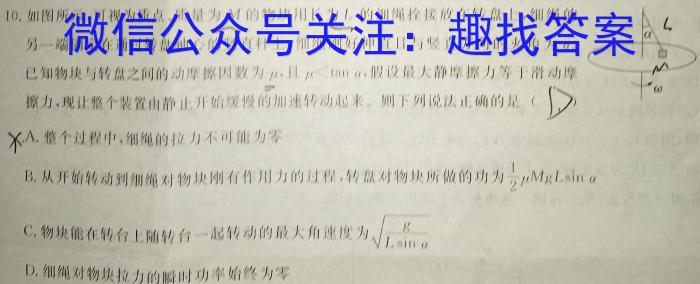 10. 如图所示,可视为质点、质量为 M 的物块用长为 L 的细绳拴接放在转盘上,细绳的
微信公众号关注:趣找答案
另一端
已知物块与转盘之间的动摩擦因数为 μ,且 μ<tan α,假设最大静摩擦力等于滑动摩
擦力,现让整个装置由静止开始缓慢的加速转动起来。则下列说法正确的是( D )
A. 整个过程中,细绳的拉力不可能为零
B. 从开始转动到细绳对物块刚有作用力的过程,转盘对物块所做的功为 1/2 μMgLsin α
C. 物块能在转台上随转台一起转动的最大角速度为 √(g/(Lsin α))
D. 细绳对物块拉力的瞬时功率始终为零
α
L
M
ω